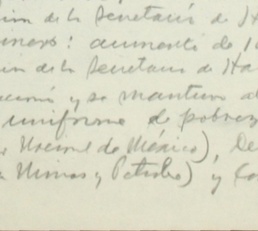 de la Secretaría de
aumento de
de la Secretaria de Ha
y se mantuvo al
uniforme de pobrez
Nacional de México), De
Minas y Petroleo) y Co